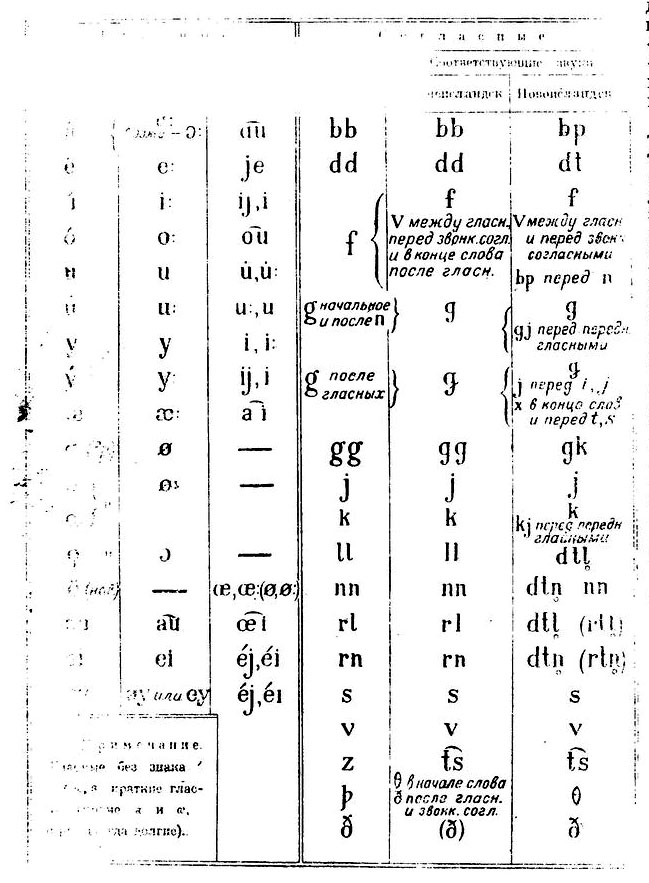 Согласные
Соответствующие звуки
Новоисландск
a͡u bb bb bp
e: je dd dd dt
i: ij,i f f f
V между гласн. V между гласн
перед звонк.согл. и перед звон.
и в конце слова согласными
после гласн. bp перед n
o: o͡u
u u̇,u̇:
u: u:,u g начальное и после n g g
gj перед передн
гласными
y i, i:
y: ij,i g после гласных g g
j перед i, j
x в конце слов
и перед t,s
æ: a͡i
ø — gg gg gk
ø: — j j j
k k k
kj перед передн
гласными
ɔ — ll ll dtl̥
— œ,œ:(ø,ø:) nn nn dtn̥ nn
a͡u œ͡i rl rl dtl̥ (rtl̥)
ei éj,éi rn rn dtn̥ (rtn̥)
или ey éj,éı s s s
v v v
z t͡s t͡s
þ θ в начале слова θ
ð после гласн.
и звонк. согл.
ð (ð) ð
Примечание.
без знака ´
краткие глас-
и æ,
долгие).